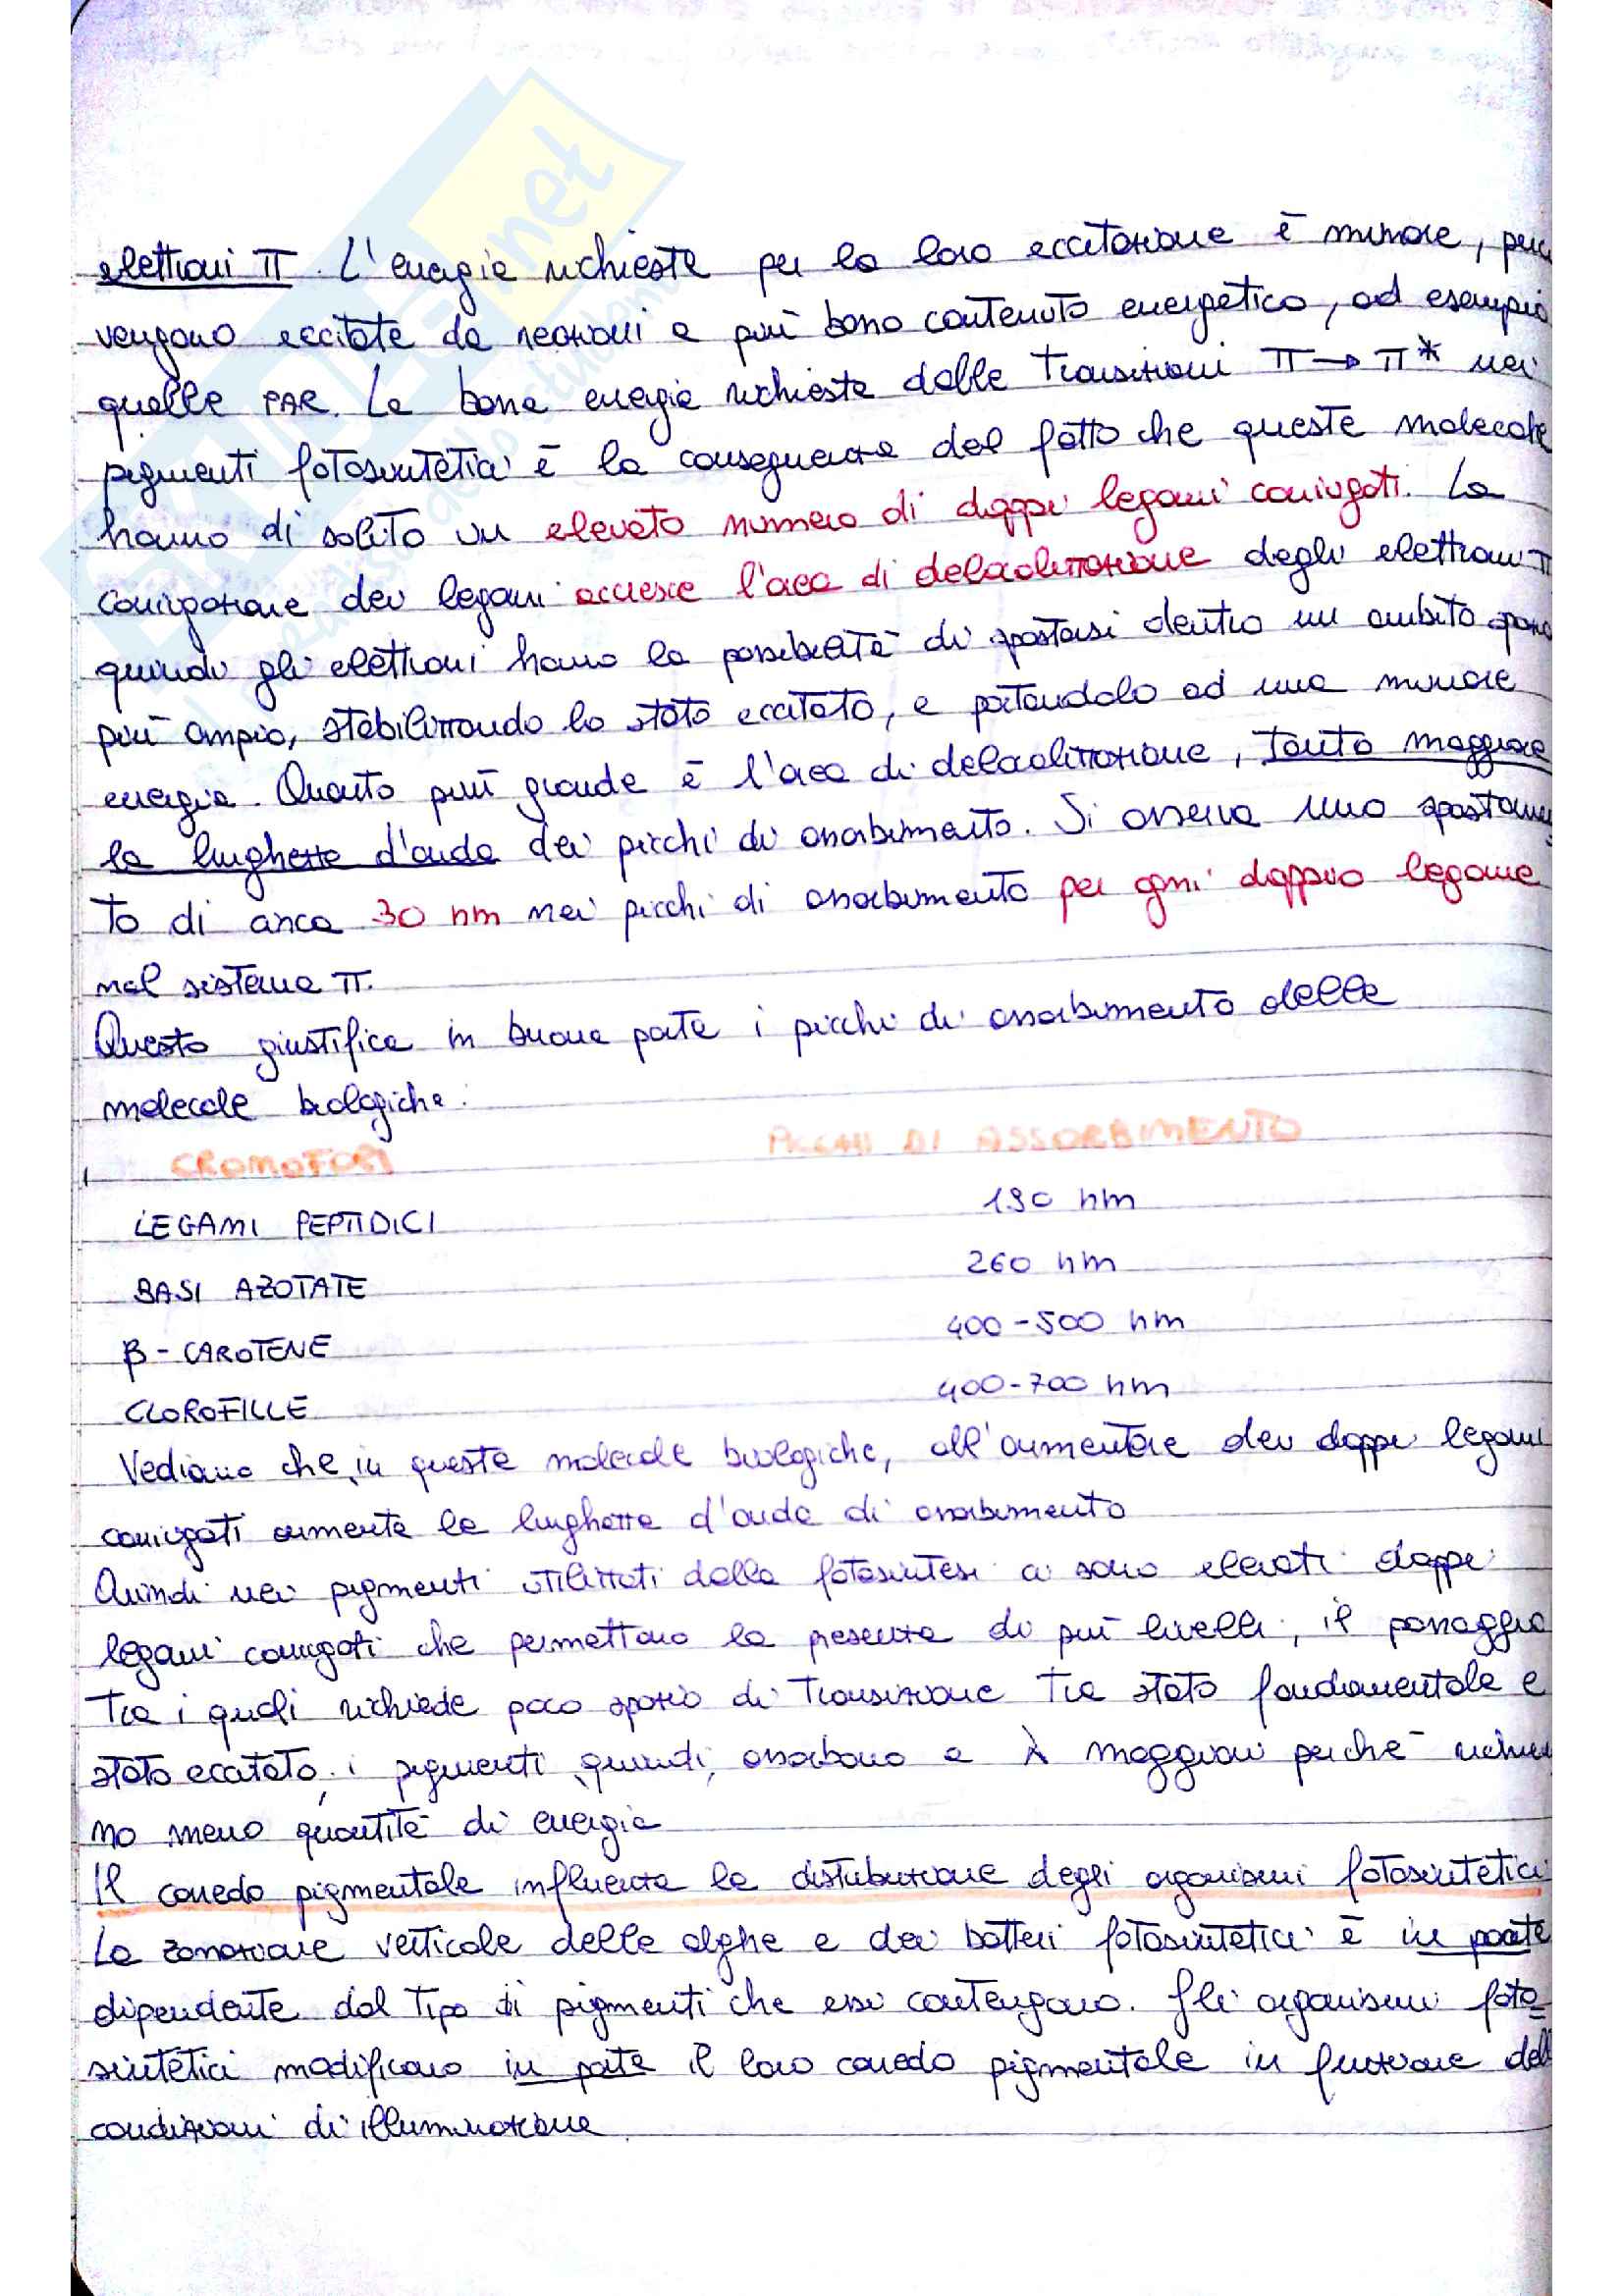 elettroni π. L'energia richiesta per la loro eccitazione è minore,
vengono eccitate da reazioni a più basso contenuto energetico, ad esempio
quelle PAR. La bassa energia richiesta dalle transizioni π → π* nei
pigmenti fotosintetici è la conseguenza del fatto che queste molecole
hanno di solito un elevato numero di doppi legami coniugati. La
coniugazione dei legami accresce l'area di delocalizzazione degli elettroni π
quindi gli elettroni hanno la possibilità di spostarsi dentro un ambito
più ampio, stabilizzando lo stato eccitato, e portandolo ad una minore
energia. Quanto più grande è l'area di delocalizzazione, tanto maggiore
la lunghezza d'onda dei picchi di assorbimento. Si osserva uno spostamen
to di circa 30 nm nei picchi di assorbimento per ogni doppio legame
nel sistema π.
Questo giustifica in buona parte i picchi di assorbimento delle
molecole biologiche:
CROMOFORI PICCHI DI ASSORBIMENTO
LEGAMI PEPTIDICI 190 nm
BASI AZOTATE 260 nm
β-CAROTENE 400-500 nm
CLOROFILLE 400-700 nm
Vediamo che, in queste molecole biologiche, all'aumentare dei doppi legami
coniugati aumenta la lunghezza d'onda di assorbimento
Quindi nei pigmenti utilizzati dalla fotosintesi ci sono elevati doppi
legami coniugati che permettono la presenza di più livelli, il passaggio
tra i quali richiede poco spazio di transizione tra stato fondamentale e
stato eccitato, i pigmenti, quindi, assorbono a λ maggiori perchè richiedo
no meno quantità di energia
Il corredo pigmentale influenza la distribuzione degli organismi fotosintetici
La zonazione verticale delle alghe e dei batteri fotosintetici è in parte
dipendente dal tipo di pigmenti che essi contengono. Gli organismi foto-
sintetici modificano in parte il loro corredo pigmentale in funzione
condizioni di illuminazione
.net